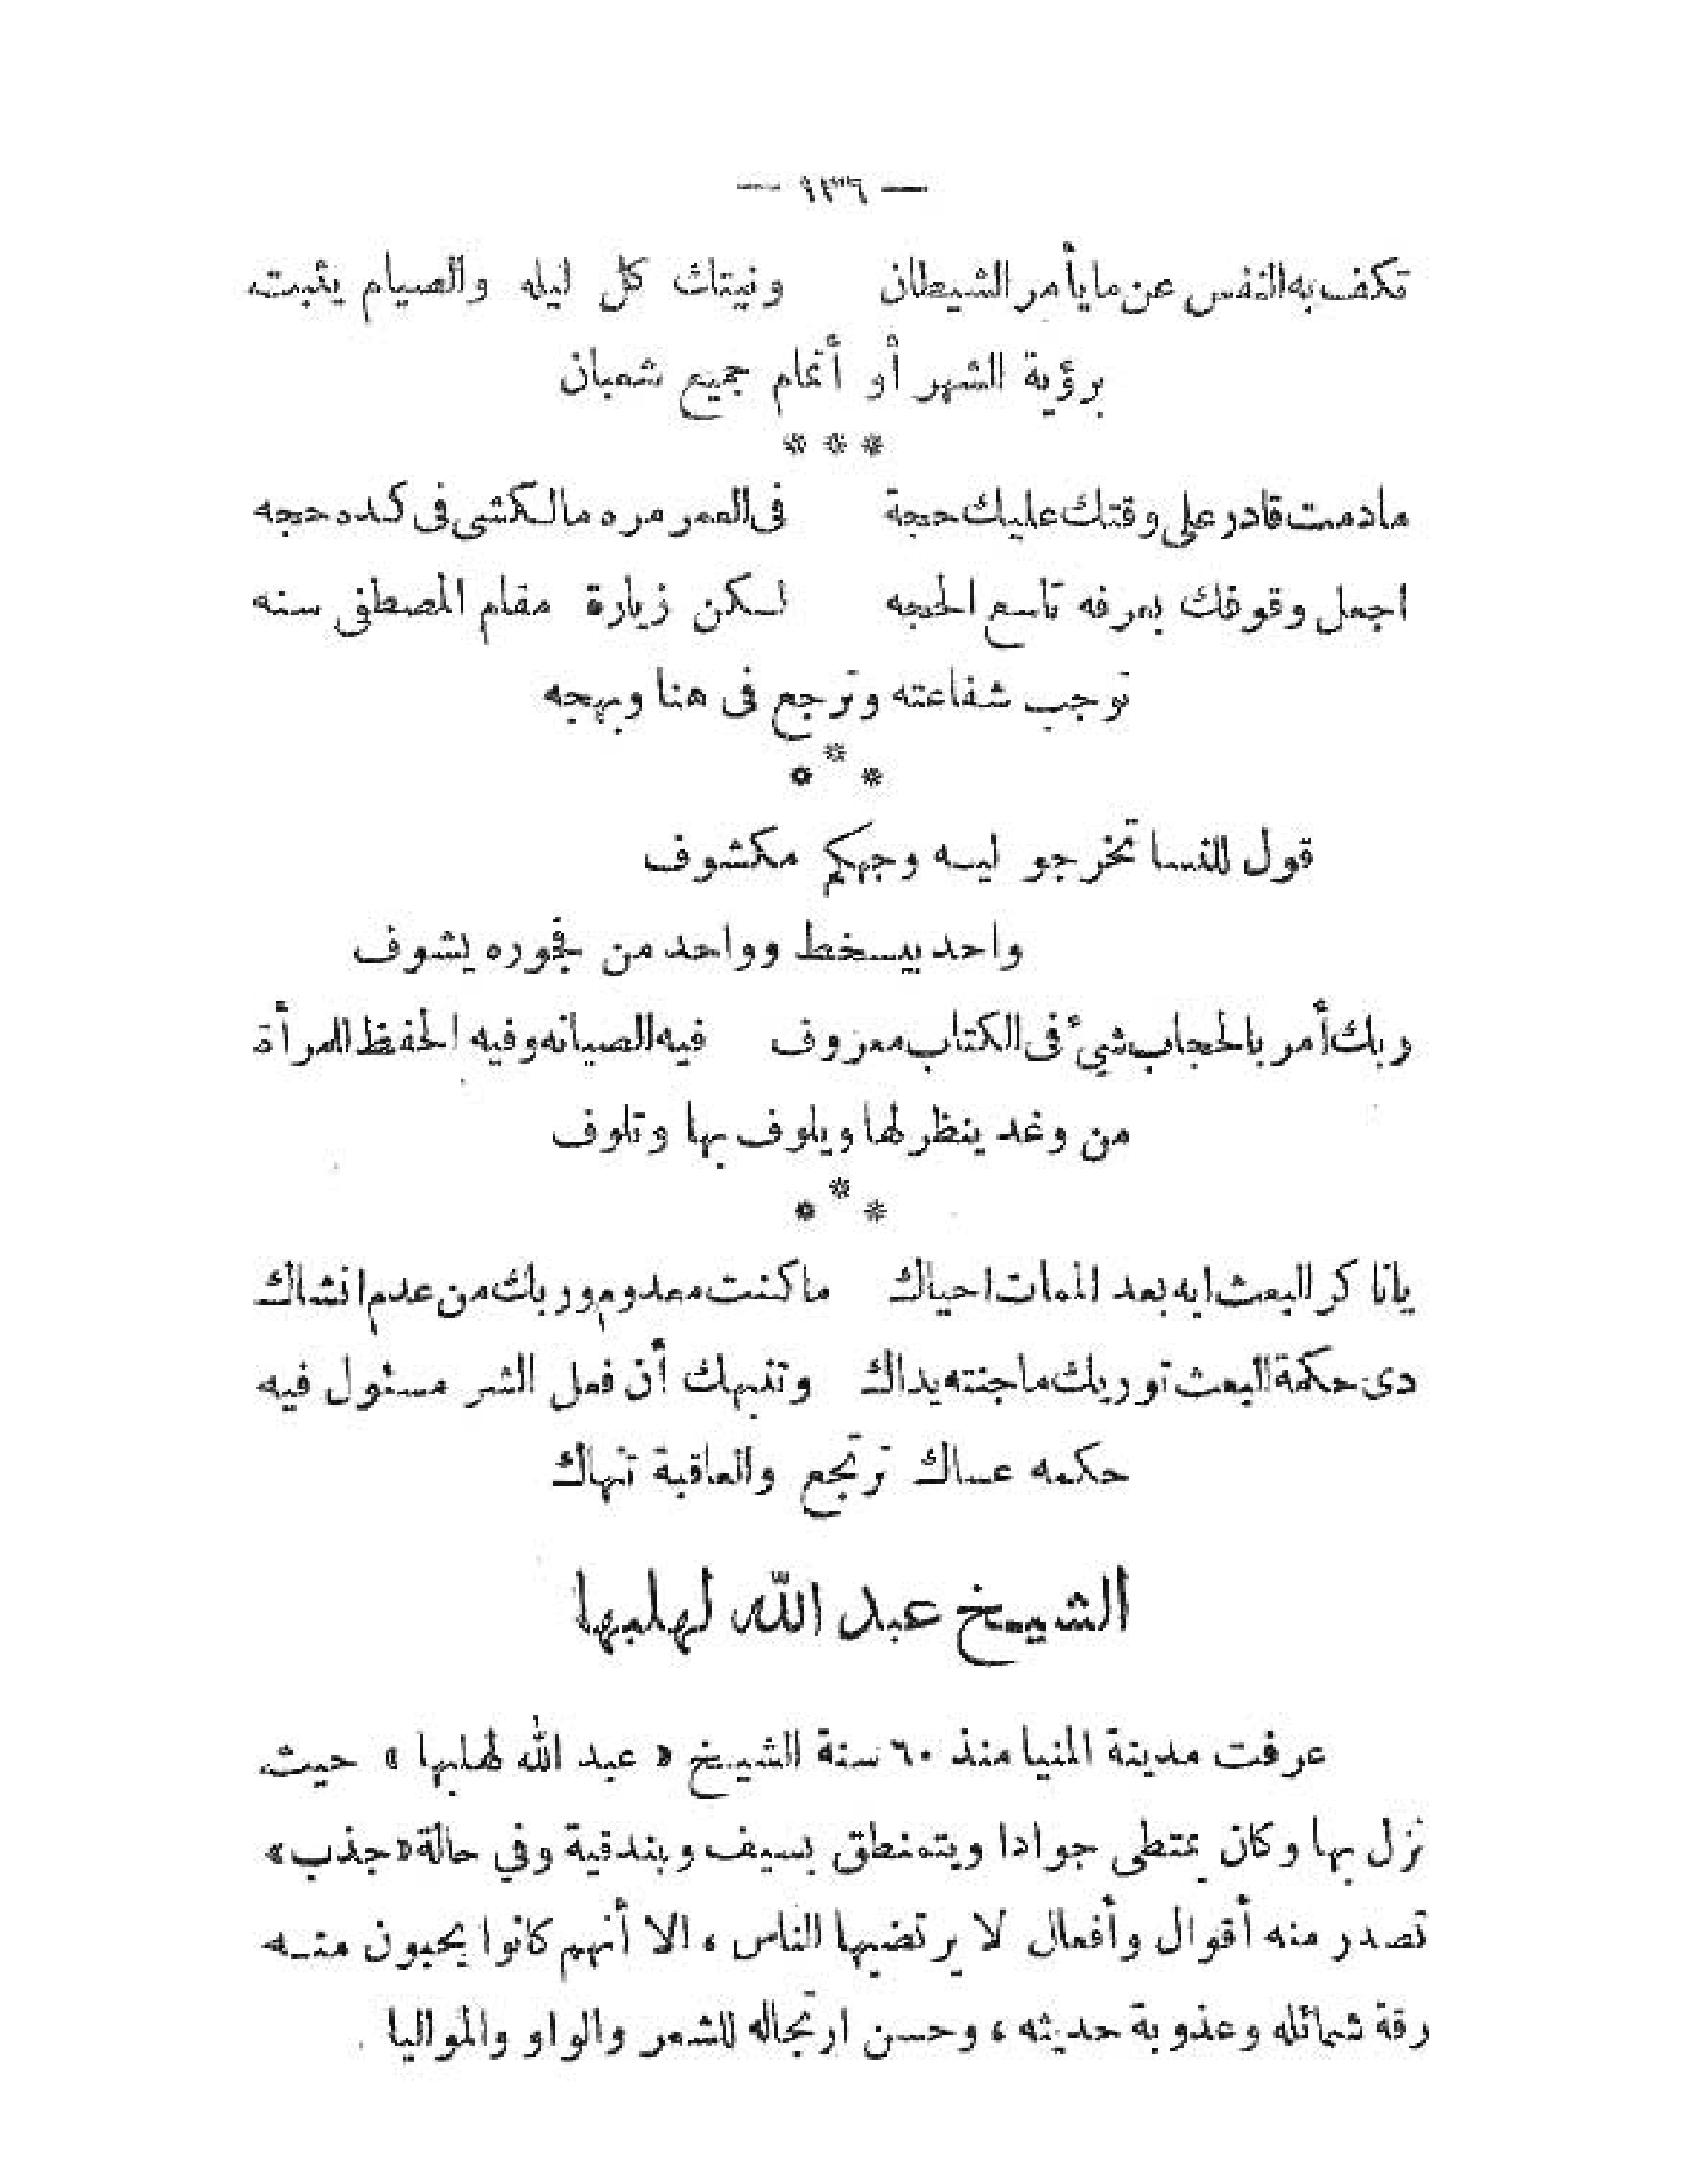 — ١٣٦ —
تكف به النفس عن ما يأمر الشيطان ونيتك كل ليله والصيام يثبت
برؤية الشهر أو أتمام جميع شعبان
* * *
مادمت قادر على وقتك عليك حجة فى العمر مره مالكشى فى كده حجه
اجعل وقوفك بعرفه تاسع الحجه لكن زيارة مقام المصطفى سنه
توجب شفاعته وترجع فى هنا وبهجه
* * *
قول للنسا تخرجو ليه وجهكم مكشوف
واحد بيسخط وواحد من فجوره يشوف
ربك أمر بالحجاب شيء فى الكتاب معروف فيه الصيانه وفيه الحفظ للمرأة
من وغد ينظر لها ويلوف بها وتلوف
* * *
يانا كر البعث ايه بعد الممات احياك ما كنت معدوم وربك من عدم انشاك
دى حكمة البعث توريك ما جنته يداك وتنبهك أن فعل الشر مسئول فيه
حكمه عساك ترتجع والعاقبة تنهاك
الشيخ عبد الله لهلبها
عرفت مدينة المنيا منذ ٦٠ سنة الشيخ « عبد الله لهلبها » حيث
نزل بها وكان يمتطى جوادا ويتمنطق بسيف وبندقية وفي حالة «جذب»
تصدر منه أقوال وأفعال لا يرتضيها الناس ، الا أنهم كانوا يحبون منه
رقة شمائله وعذوبة حديثه ، وحسن ارتجاله للشعر والواو والمواليا .